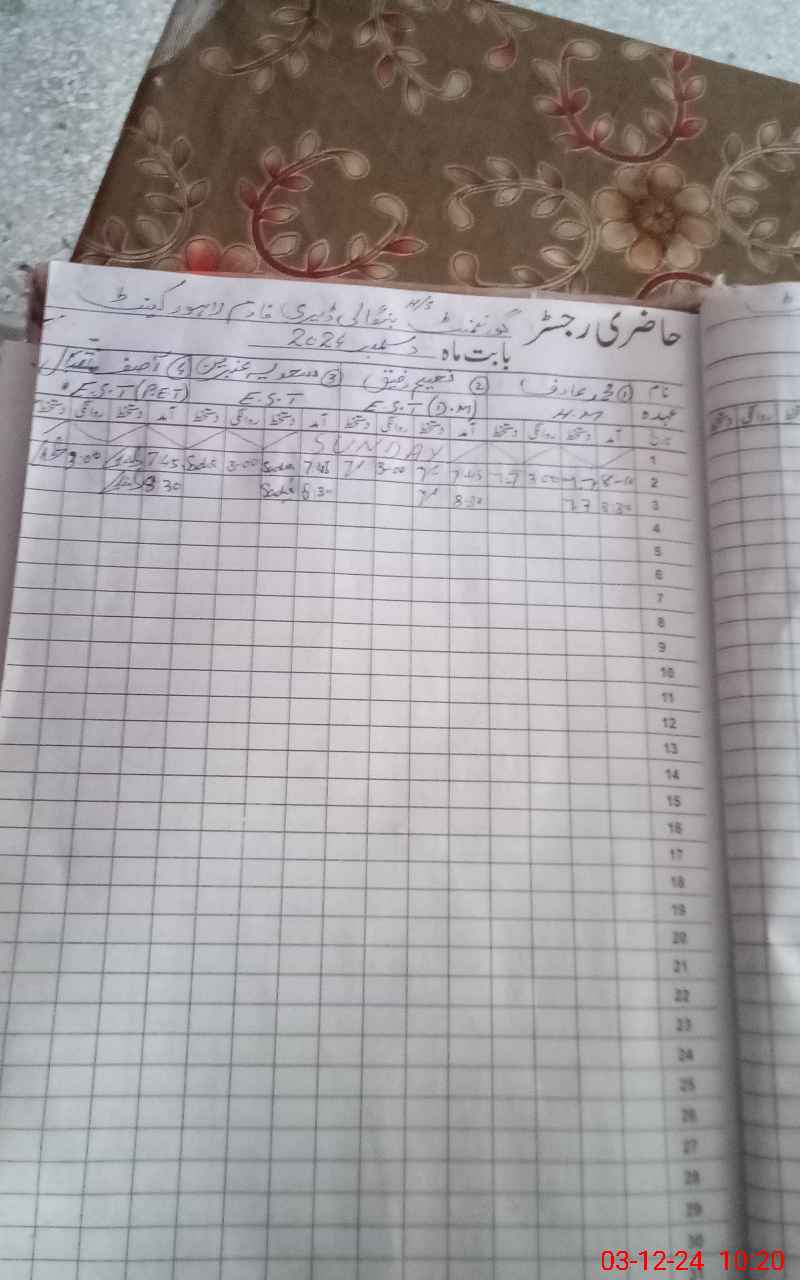 حاضری رجسٹر گورنمنٹ H/S بنگالی ڈیری فارم لاہور کینٹ
بابت ماہ دسمبر 2024
نام ① محمد عارف ② نعیم رفیق ③ سعدیہ عنبرین ④ آصف
عہدہ H.M E.S.T (D.M) E.S.T E.S.T (P.E.T)
تاریخ آمد دستخط روانگی دستخط آمد دستخط روانگی دستخط آمد دستخط روانگی دستخط آمد دستخط روانگی دستخط
1 SUNDAY
2 8-10 3:00 7:45 3:00 7:45 Sadia 3:00 Sadia 7:45 3:00
3 8:30 8:30 8:30 Sadia 8 30
4
5
6
7
8
9
10
11
12
13
14
15
16
17
18
19
20
21
22
23
24
25
26
27
28
29
30
دستخط روانگی
03-12-24 10:20